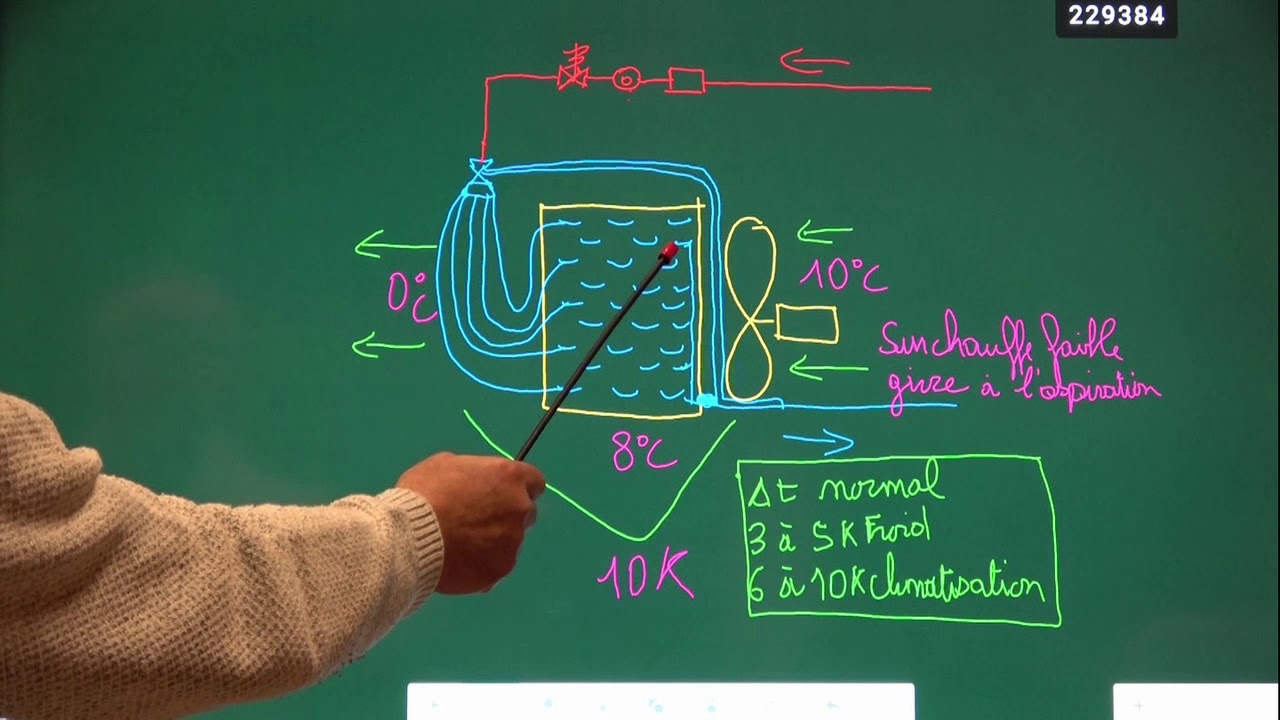 229384
0°C
10°C
Surchauffe faible
givre à l'aspiration
8°C
10K
Δt normal
3 à 5K Froid
6 à 10K Climatisation